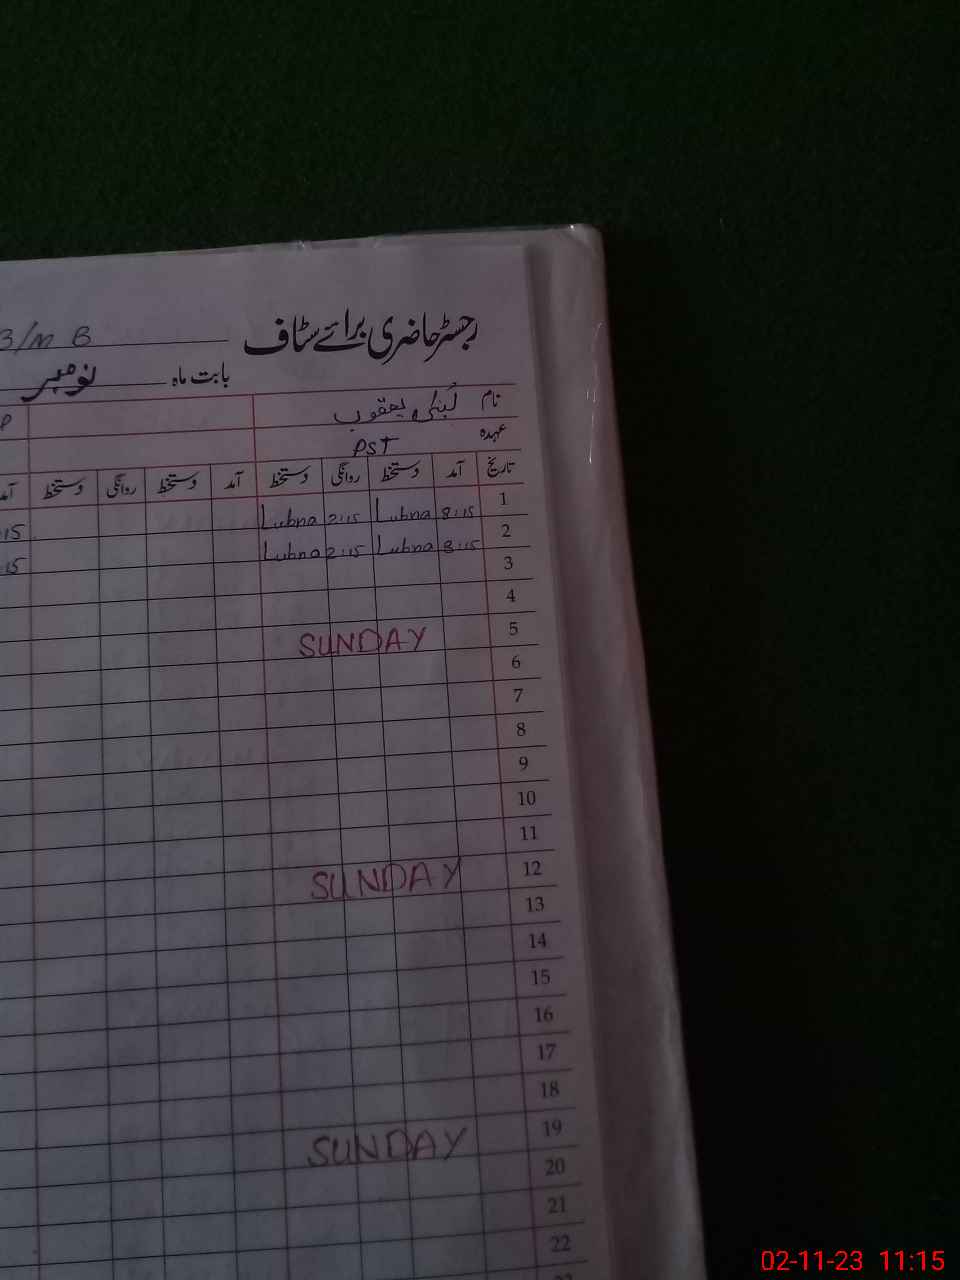 رجسٹر حاضری برائے سٹاف
B/M B
بابت ماہ نومبر
نام لبنیٰ یعقوب
عہدہ PST
تاریخ آمد دستخط روانگی دستخط آمد دستخط روانگی دستخط آمد
1 8:15 Lubna 2:15 Lubna :15
2 8:15 Lubna 2:15 Lubna :15
3
4
5 SUNDAY
6
7
8
9
10
11
12 SUNDAY
13
14
15
16
17
18
19 SUNDAY
20
21
22
02-11-23 11:15